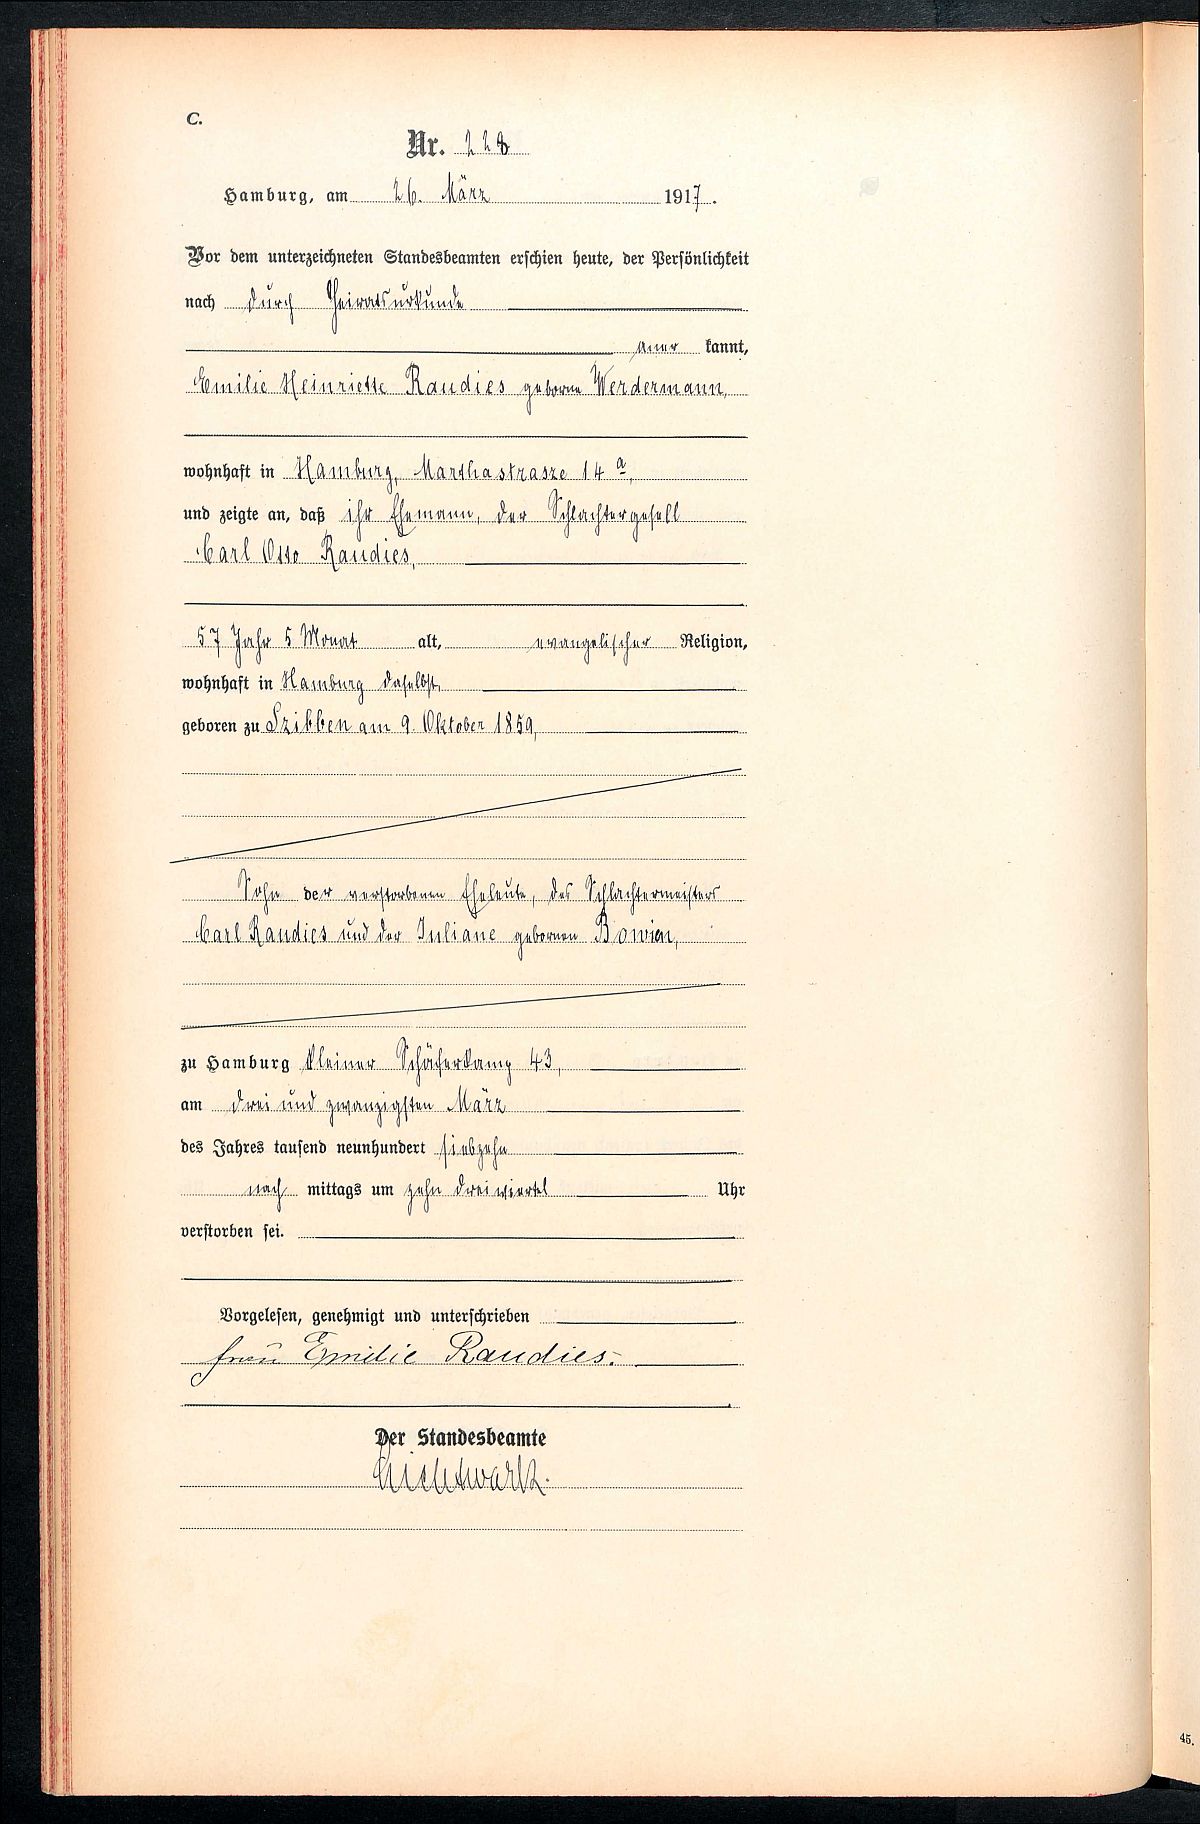 C.
Nr. 228
Hamburg, am 26. März 1917.
Vor dem unterzeichneten Standesbeamten erschien heute, der Persönlichkeit
nach durch Heiratsurkunde
aner kannt,
Emilie Heinriette Raudies geborne Werdermann,
wohnhaft in Hamburg, Marthastrasze 14 a,
und zeigte an, daß ihr Ehemann, der Schlachtergesell
Carl Otto Raudies,
57 Jahr 5 Monat alt, evangelischer Religion,
wohnhaft in Hamburg daselbst,
geboren zu Szibben am 9. Oktober 1859,
Sohn der verstorbenen Eheleute, des Schlachtermeisters
Carl Raudies und der Juliane gebornen Bowien,
zu Hamburg kleiner Schäferkamp 43,
am drei und zwanzigsten März
des Jahres tausend neunhundert siebzehn
nach mittags um zehn dreiviertel Uhr
verstorben sei.
Vorgelesen, genehmigt und unterschrieben
frau Emilie Raudies.
Der Standesbeamte
Lichtwark.
45.